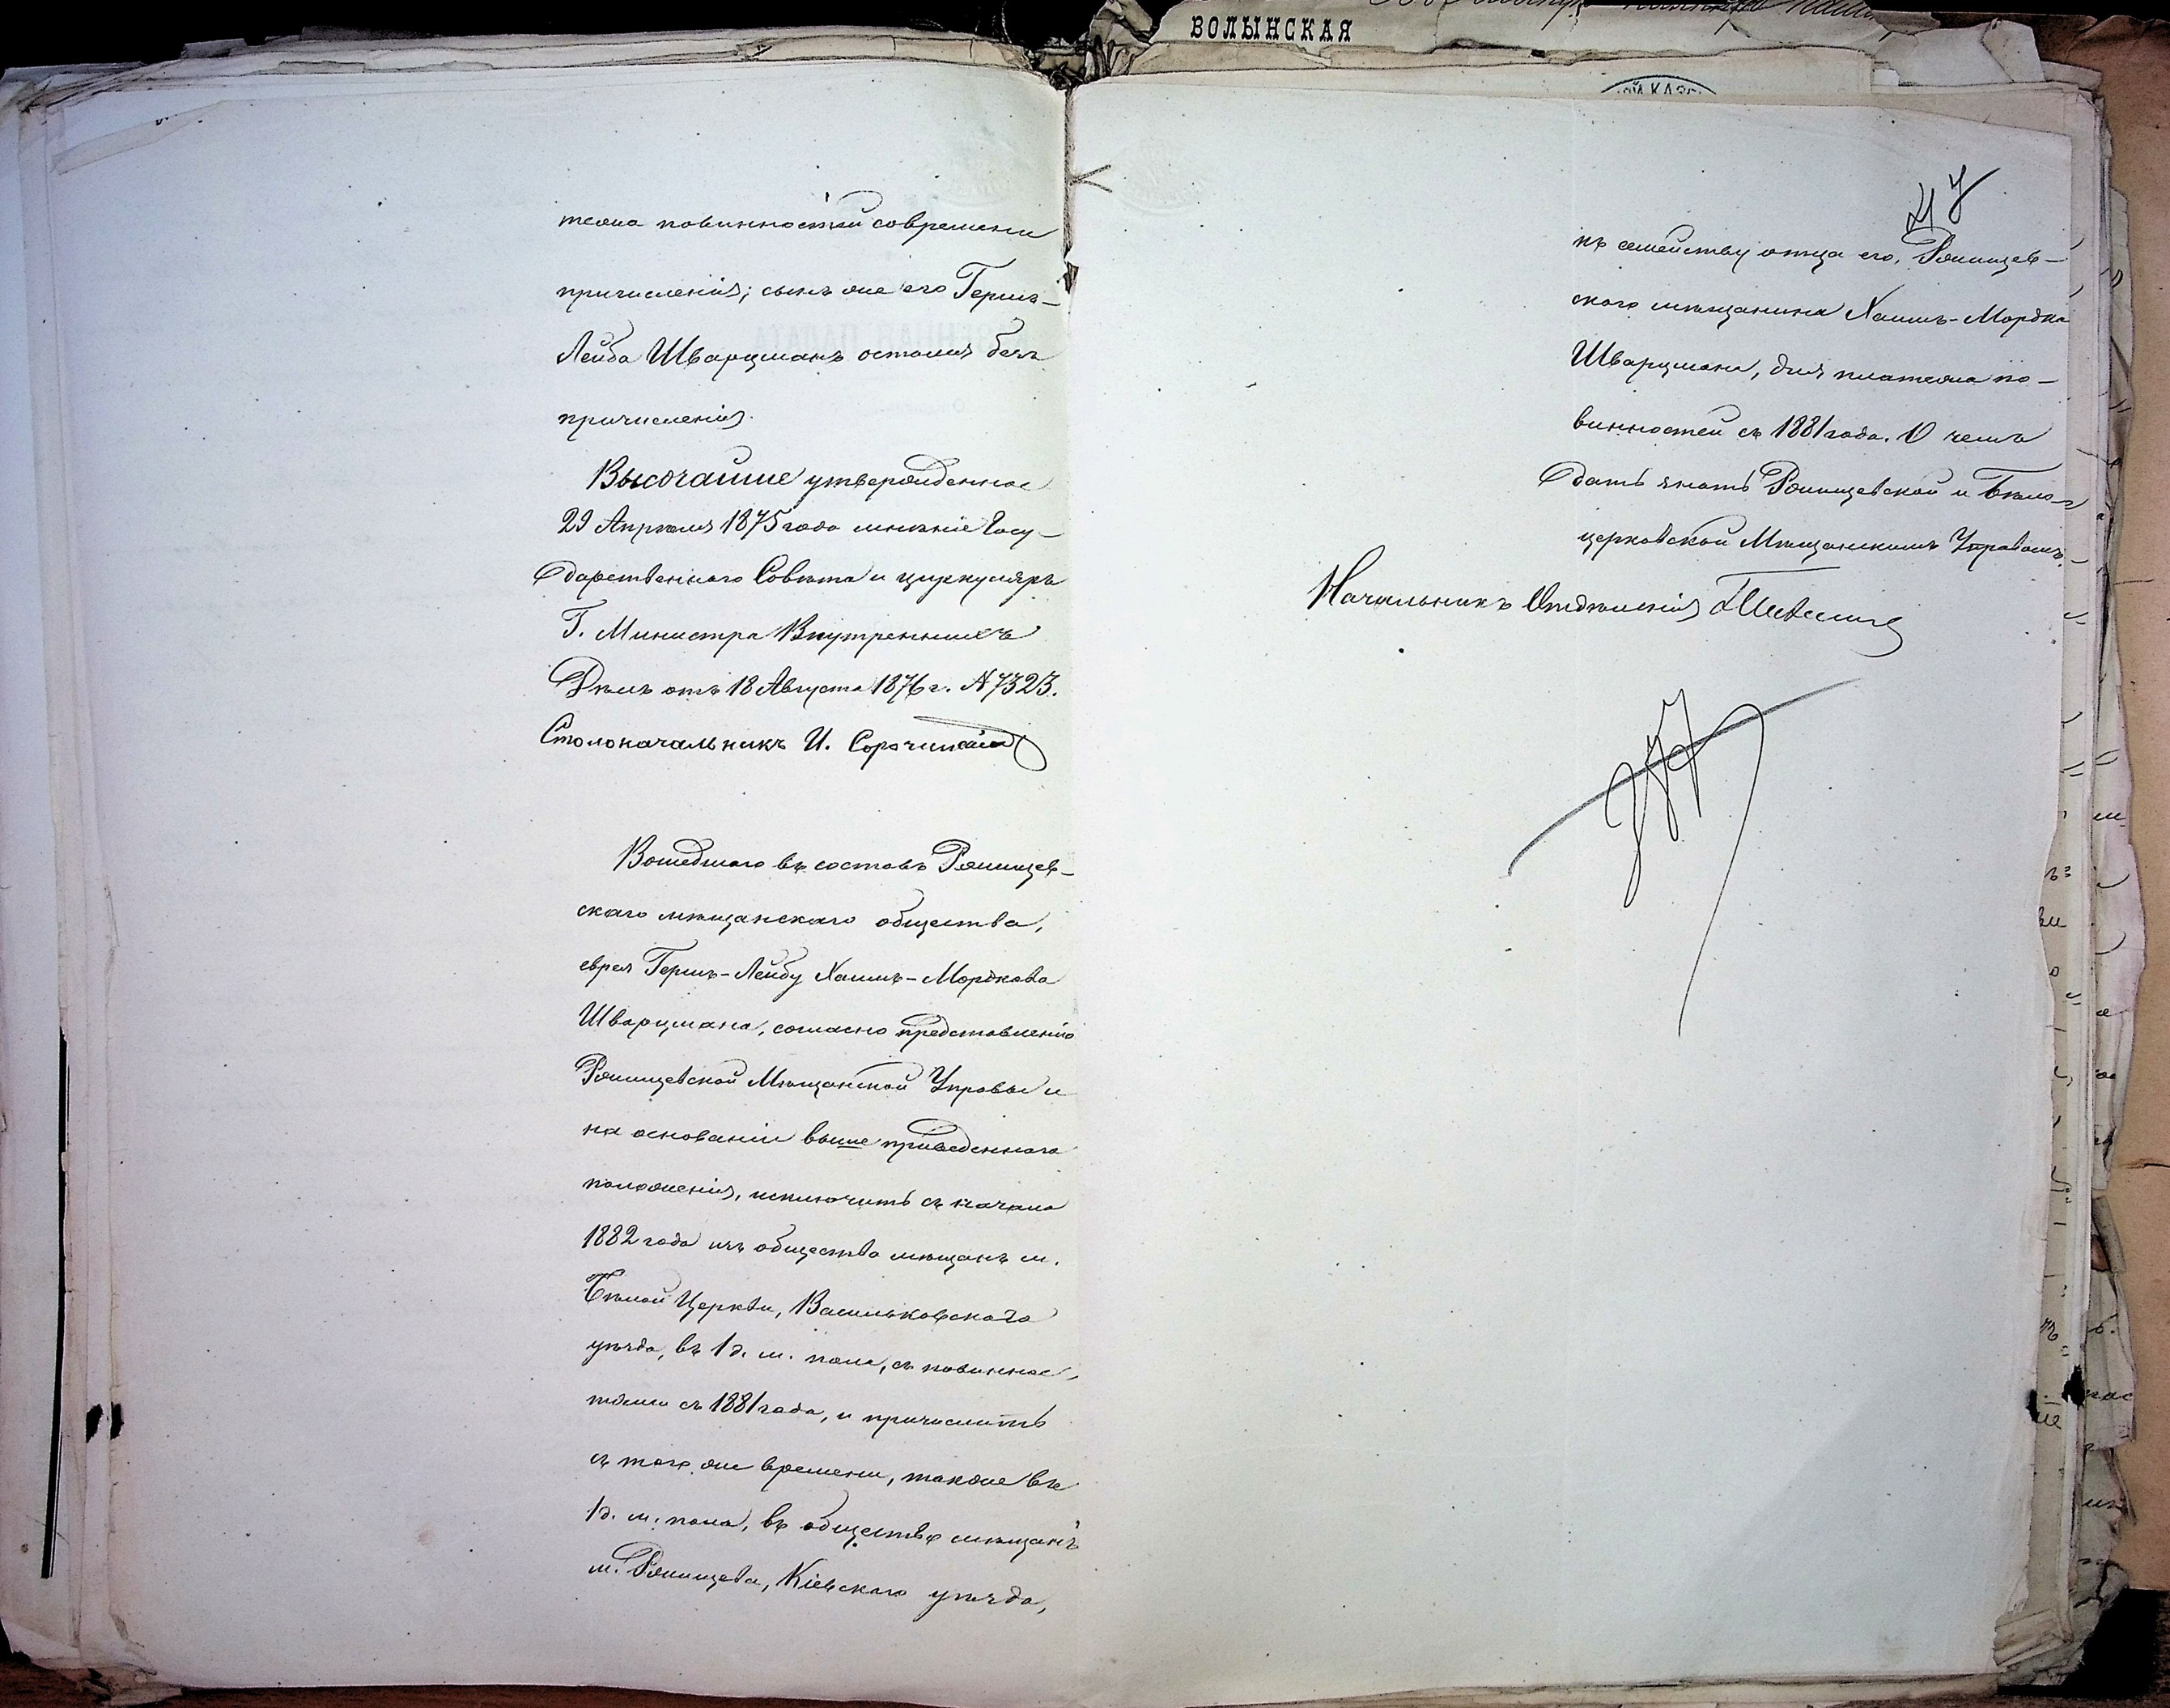 тежа повинностей современи
причисленія; сынъ же его Гершъ-
Лейба Шварцманъ остался безъ
причисленія.
Высочайше утвержденное
29 Апрѣля 1875 года мнѣніе Госу-
дарственнаго Совѣта и циркуляръ
Г. Министра Внутреннихъ
Дѣлъ отъ 18 Августа 1876 г. № 7323.
Столоначальникъ И.
Вошедшаго въ составъ Ржищев-
скаго мѣщанскаго общества,
еврея Гершъ-Лейбу Хаимъ-Мордкова
Шварцмана, согласно представленію
Ржищевской Мѣщанской Управы и
на основаніи выше приведеннаго
положенія, исключить съ начала
1882 года изъ общества мѣщанъ м.
Бѣлой Церкви, Васильковскаго
уѣзда, въ 1 д. м. пола, съ повиннос-
тями съ 1881 года, и причислить
съ того же времени, также въ
1 д. м. пола, въ общество мѣщанъ
м. Ржищева, Кіевскаго уѣзда,
ВОЛЫНСКАЯ
ОЙ КАЗ
къ семейству отца его, Ржищев-
скаго мѣщанина Хаимъ-Мордка
Шварцмана, для платежа по-
винностей съ 1881 года. О чемъ
дать знать Ржищевской и Бѣло-
церковской Мѣщанскимъ Управамъ.
Начальникъ Отдѣленія